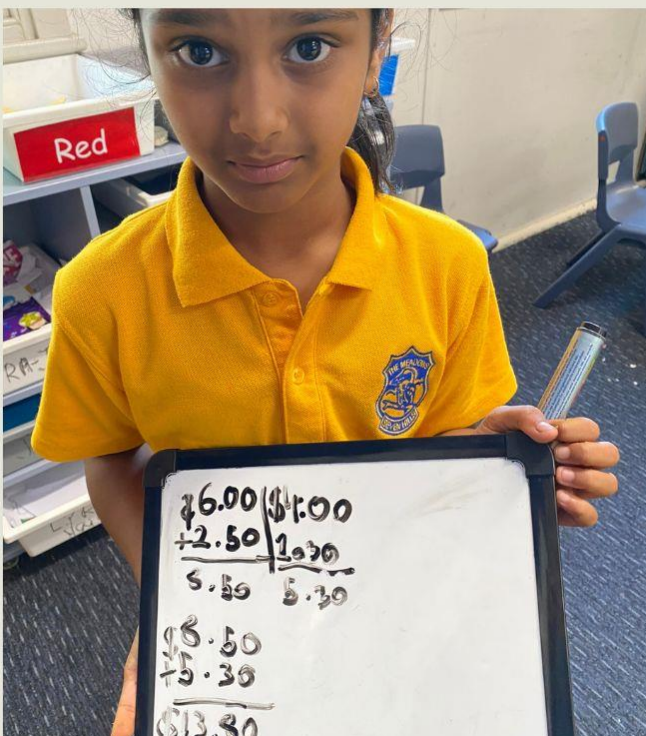 Red
RA-
THE MEADOWS
SEVEN HILLS
$6.00
+2.50
8.50
$4.00
1.30
5.30
$8.50
+5.30
$13.80